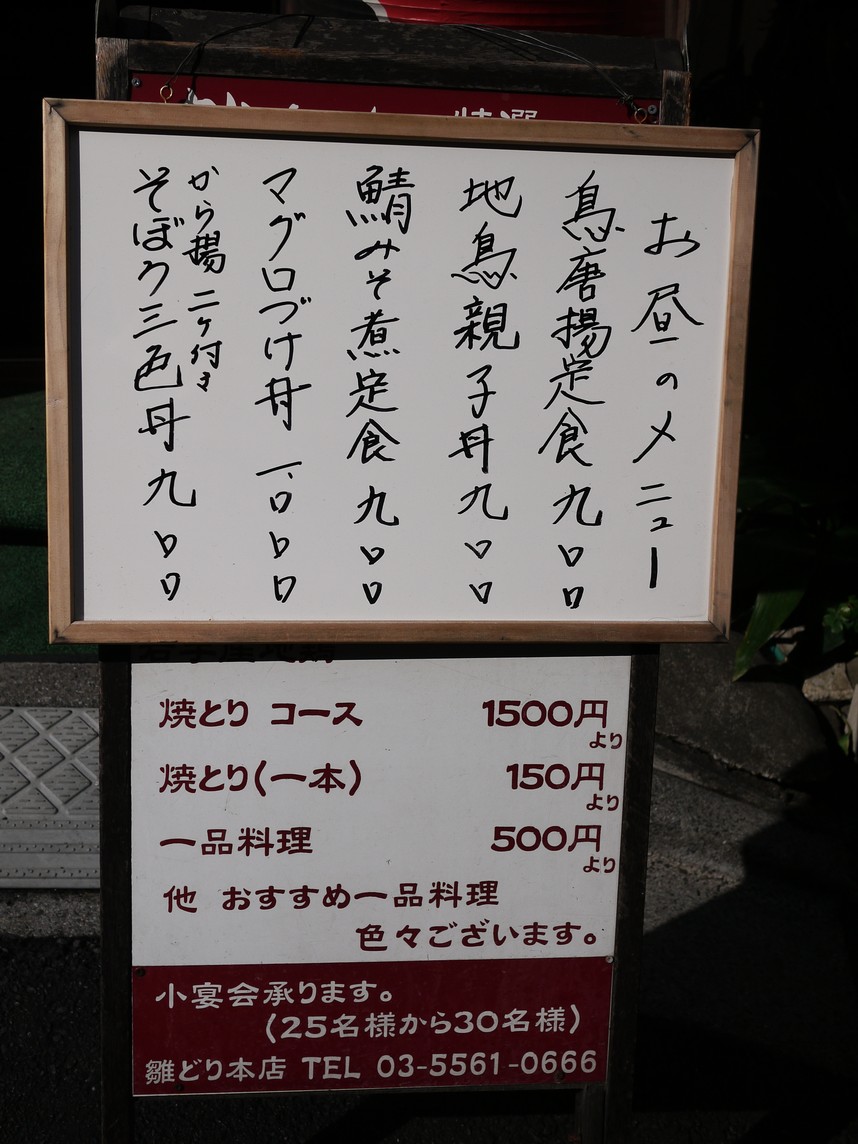 特選
お昼のメニュー
鳥唐揚定食 九〇〇
地鳥親子丼 九〇〇
鯖みそ煮定食 九〇〇
マグロづけ丼 一、〇〇〇
から揚二ヶ付き
そぼろ三色丼 九〇〇
焼とり コース 1500円より
焼とり(一本) 150円より
一品料理 500円より
他 おすすめ一品料理
色々ございます。
小宴会承ります。
(25名様から30名様)
雛どり本店 TEL 03-5561-0666